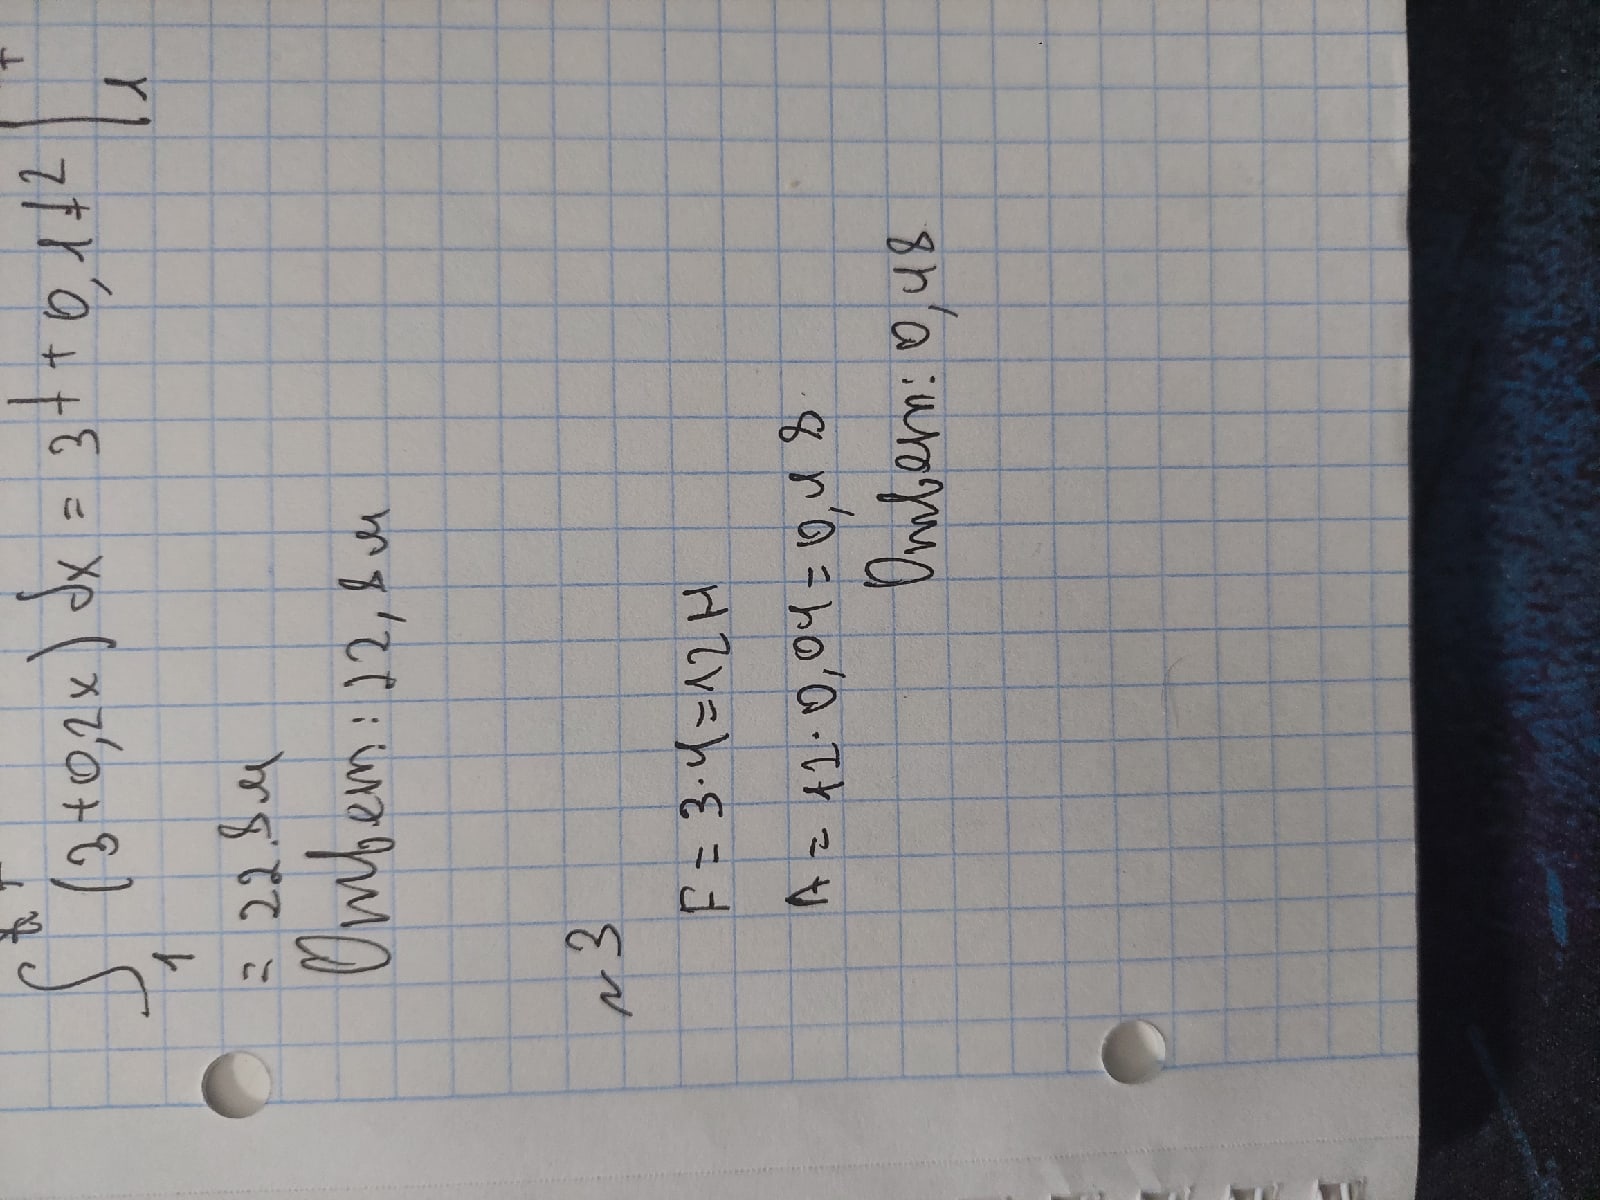 ∫₁⁷ (3+0,2x)dx = 3t+0,1t2 |₁⁷
= 22.8м
Ответ: 22,8м
N3
F = 3·4=12H
A = 12·0,04=0,48
Ответ: 0,48